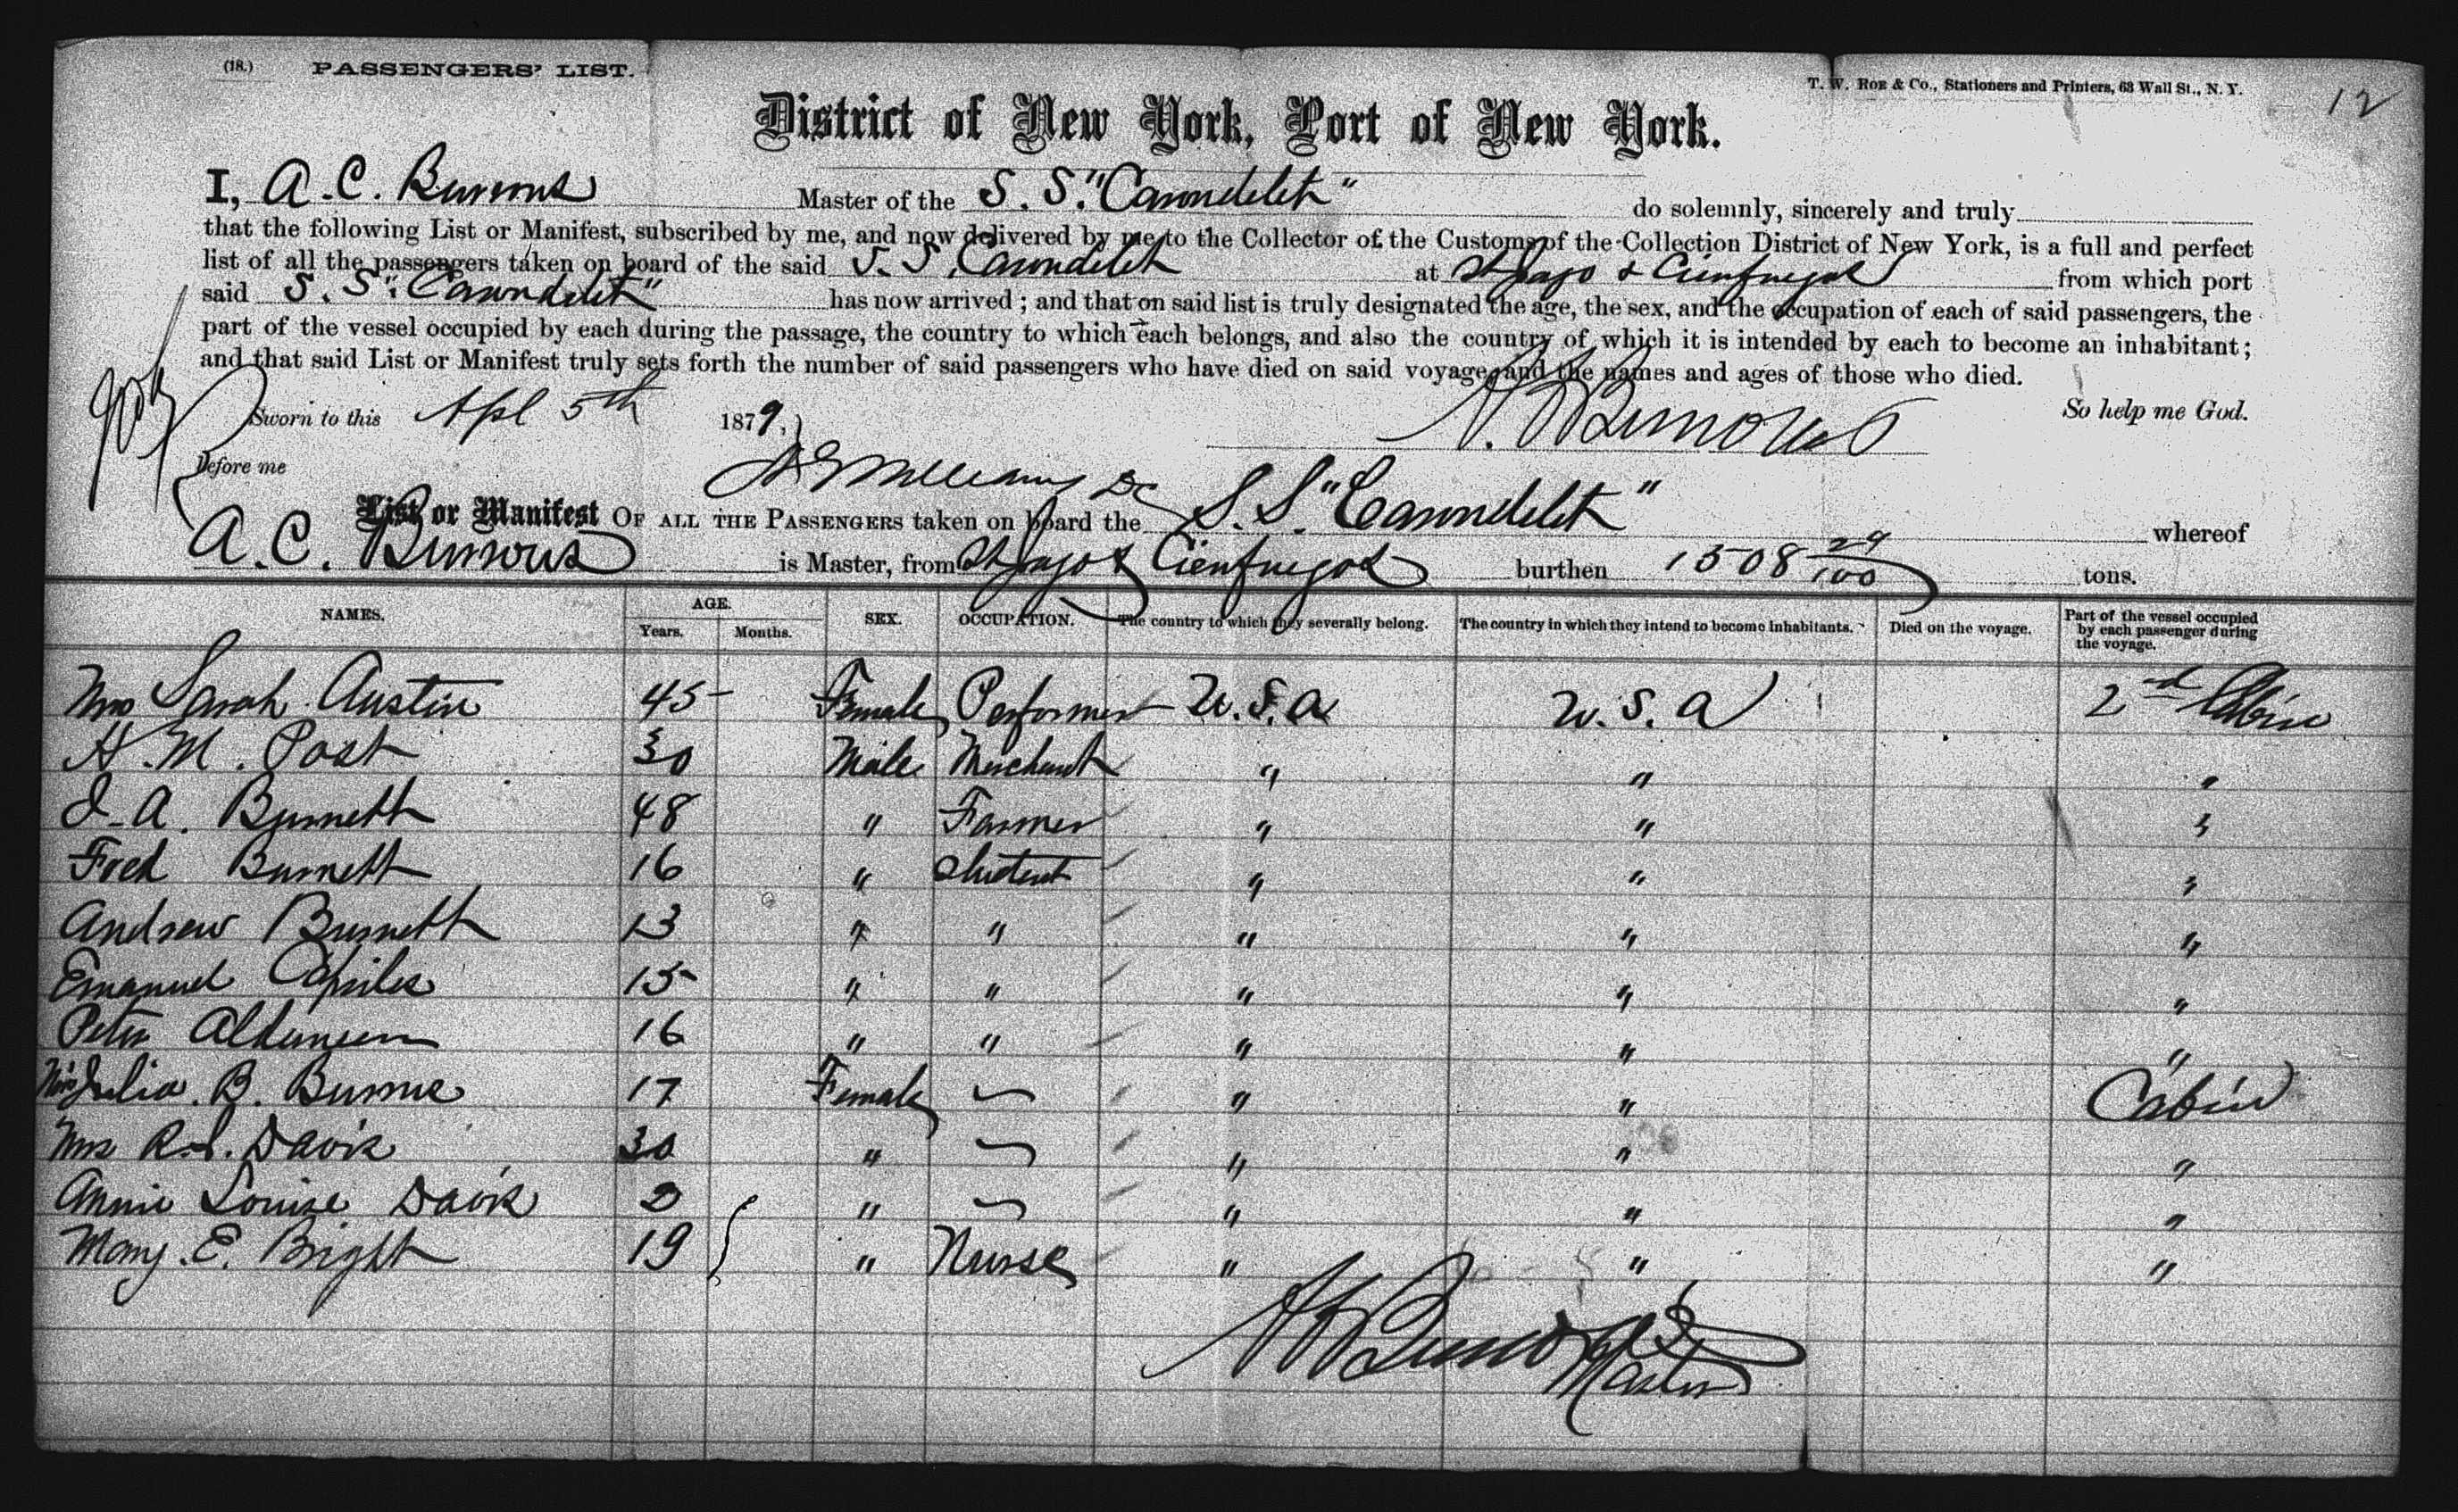 (18.) PASSENGERS' LIST.
T. W. ROE & Co., Stationers and Printers, 63 Wall St., N. Y.
12
District of New York, Port of New York.
I, A. C. Burrows Master of the S. S. "Carondelet" do solemnly, sincerely and truly
that the following List or Manifest, subscribed by me, and now delivered by me to the Collector of the Customs of the Collection District of New York, is a full and perfect
list of all the passengers taken on board of the said S. S. Carondelet at St Jago & Cienfuegos from which port
said S. S. "Carondelet" has now arrived; and that on said list is truly designated the age, the sex, and the occupation of each of said passengers, the
part of the vessel occupied by each during the passage, the country to which each belongs, and also the country of which it is intended by each to become an inhabitant;
and that said List or Manifest truly sets forth the number of said passengers who have died on said voyage, and the names and ages of those who died.
Sworn to this Apl 5th 1879, A. C. Burrows So help me God.
Before me Williams
List or Manifest OF ALL THE PASSENGERS taken on board the S. S. "Carondelet" whereof
A. C. Burrows is Master, from St Jago & Cienfuegos burthen 1508 29/100 tons.
NAMES. AGE. Years. Months. SEX. OCCUPATION. The country to which they severally belong. The country in which they intend to become inhabitants. Died on the voyage. Part of the vessel occupied by each passenger during the voyage.
Mrs Sarah Austin 45 Female Performer U.S.A U.S.A 2nd Cabin
H. M. Post 30 Male Merchant " " "
I. A. Burnett 48 " Farmer " " "
Fred Burnett 16 " Student " " "
Andrew Burnett 13 " " " " "
Emanuel 15 " " " " "
Peter 16 " " " " "
Miss Julia B. 17 Female — " " Cabin
Mrs R. S. Davis 30 " — " " "
Annie Louise Davis 2 " — " " "
Mary E. Bright 19 " Nurse " " "
A. C. Burrows
Master